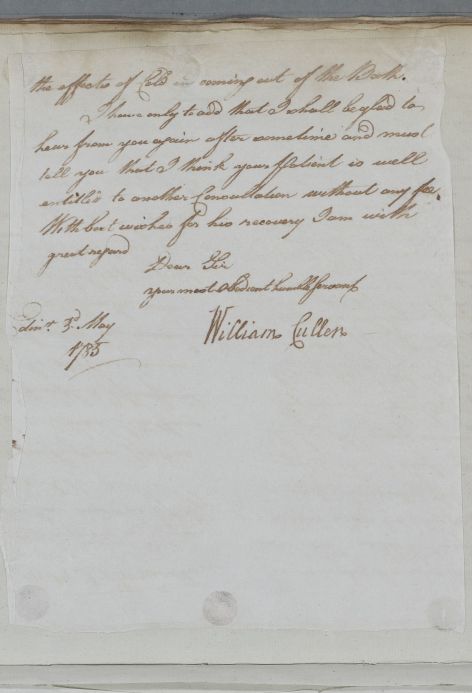 the effects of Cold in coming out of the Bath.
I have only to add that I shall be glad to
hear from you again after sometime and must
tell you that I think your Patient is well
entitl'd to another Consultation without any fee.
With best wishes for his recovery I am with
great regard
Dear Sir
your most obedient humble servant
William Cullen
Edinr. 3d. May
1785